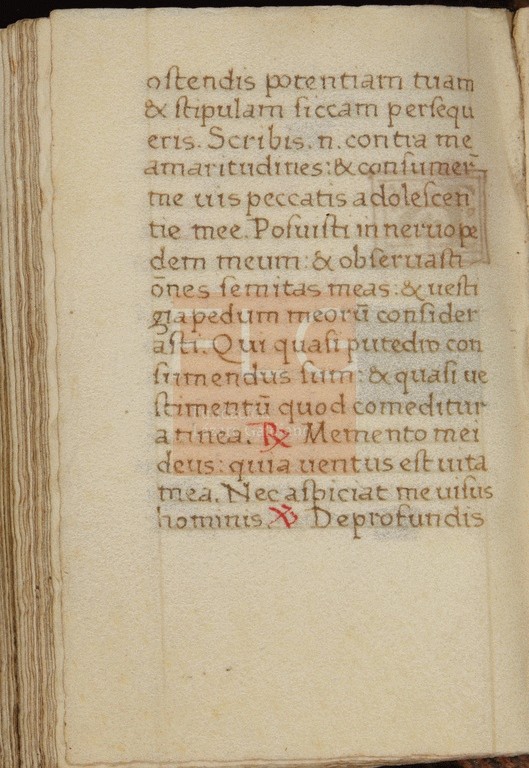 ostendis potentiam tuam
& stipulam siccam persequ
eris. Scribis. n. contra me
amaritudines: & consumer̄
me uis peccatis adolescen
tie mee. Posuisti in neruo pe
dem meum: & obseruasti
ōnes semitas meas: & uesti
gia pedum meorū consider
asti. Qui quasi putedro con
sumendus sum: & quasi ue
stimentū quod comeditur
a tinea. ℟ Memento mei
deus: quia uentus est uita
mea. Nec aspiciat me uisus
hominis. ℣ De profundis